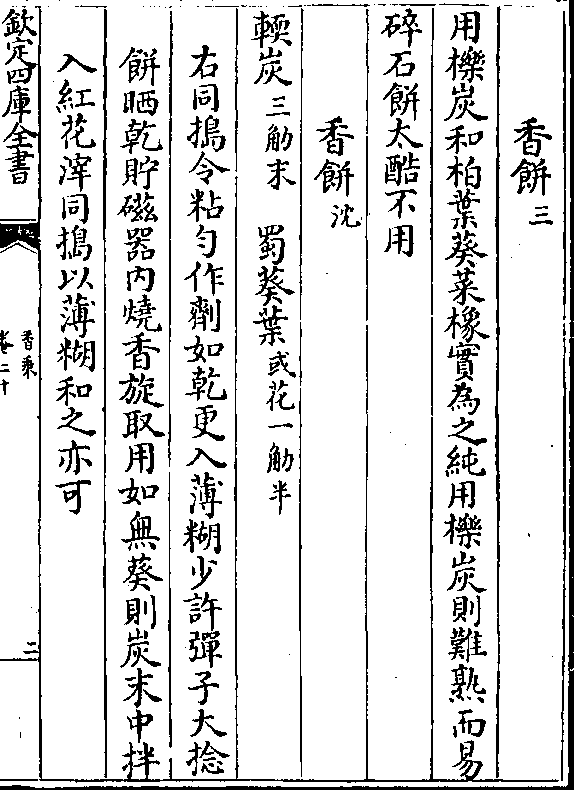 香餅三
用櫟炭和柏葉葵菜橡實為之純用櫟炭則難熟而易
碎石餅太酷不用
香餅沈
輭炭三觔末 蜀葵葉或花一觔半
右同搗令粘勻作劑如乾更入薄糊少許彈子大捻
餅晒乾貯磁器內燒香旋取用如無葵則炭末中拌
入紅花滓同搗以薄糊和之亦可
欽定四庫全書
香乘
卷二十
二